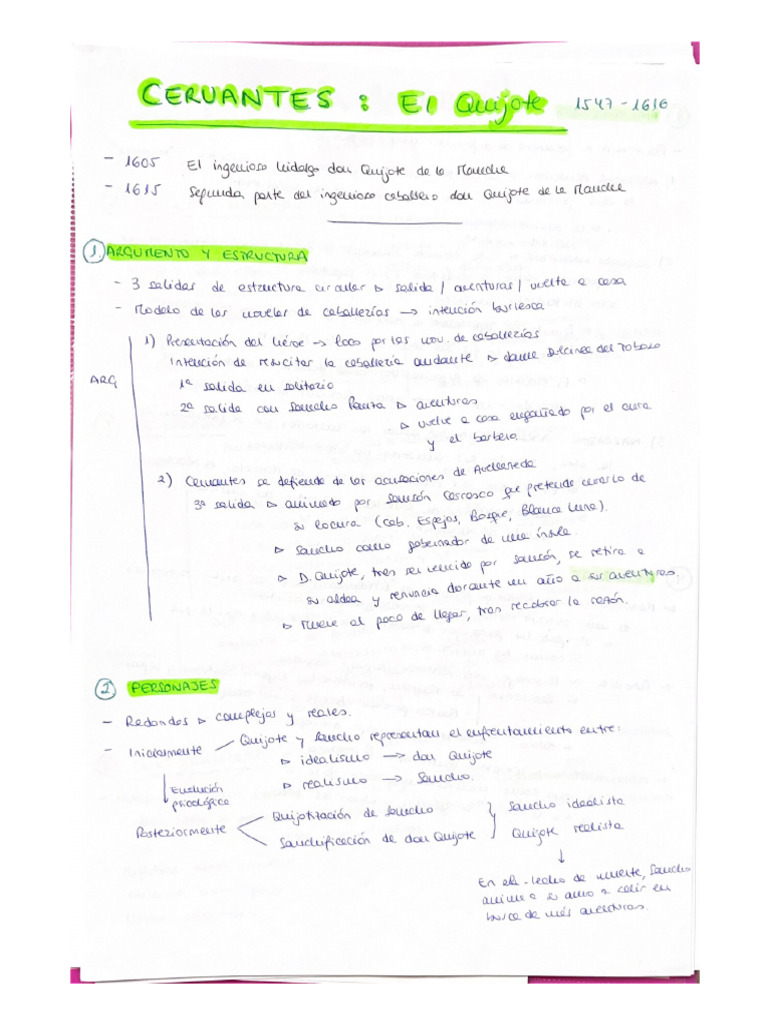 CERVANTES: El Quijote 1547-1616
- 1605 El ingenioso hidalgo don Quijote de la Mancha
- 1615 Segunda parte del ingenioso caballero don Quijote de la Mancha
1. ARGUMENTO Y ESTRUCTURA
- 3 salidas de estructura circular ▹ salida / aventuras / vuelta a casa
- Modelo de las novelas de caballerías → intención burlesca
1) Presentación del héroe → loco por las nov. de caballerías
Intención de resucitar la caballería andante ▹ dama Dulcinea del Toboso
ARG
1ª salida en solitario
2ª salida con Sancho Panza ▹ aventuras
▹ vuelve a casa engañado por el cura
y el barbero
2) Cervantes se defiende de las acusaciones de Avellaneda
3ª salida ▹ animado por Sansón Carrasco que pretende curarlo de
su locura (Cab. Espejos, Bosque, Blanca Luna).
▹ Sancho como gobernador de una ínsula.
▹ D. Quijote, tras ser vencido por Sansón, se retira a
su aldea y renuncia durante un año a sus aventuras
▹ Muere al poco de llegar, tras recobrar la razón.
2 PERSONAJES
- Redondos ▹ complejos y reales.
- Inicialmente Quijote y Sancho representan el enfrentamiento entre:
▹ idealismo → don Quijote
▹ realismo → Sancho.
Evolución
psicológica
Posteriormente
Quijotización de Sancho
Sanchificación de don Quijote
Sancho idealista
Quijote realista
En el lecho de muerte, Sancho
anima a su amo a salir en
busca de más aventuras.